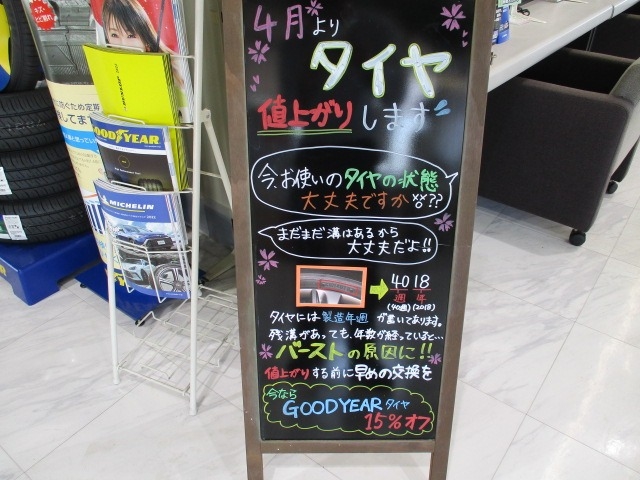 4月より
タイヤ
値上がりします
今、お使いのタイヤの状態
大丈夫ですか??
まだまだ溝はあるから
大丈夫だよ!!
4018
週 年
(40週)(2018)
タイヤには製造年週が書いてあります。
残溝があっても、年数が経っていると…
バーストの原因に!!
値上がりする前に早めの交換を
今なら
GOODYEARタイヤ
15%オフ
GOODYEAR
MICHELIN